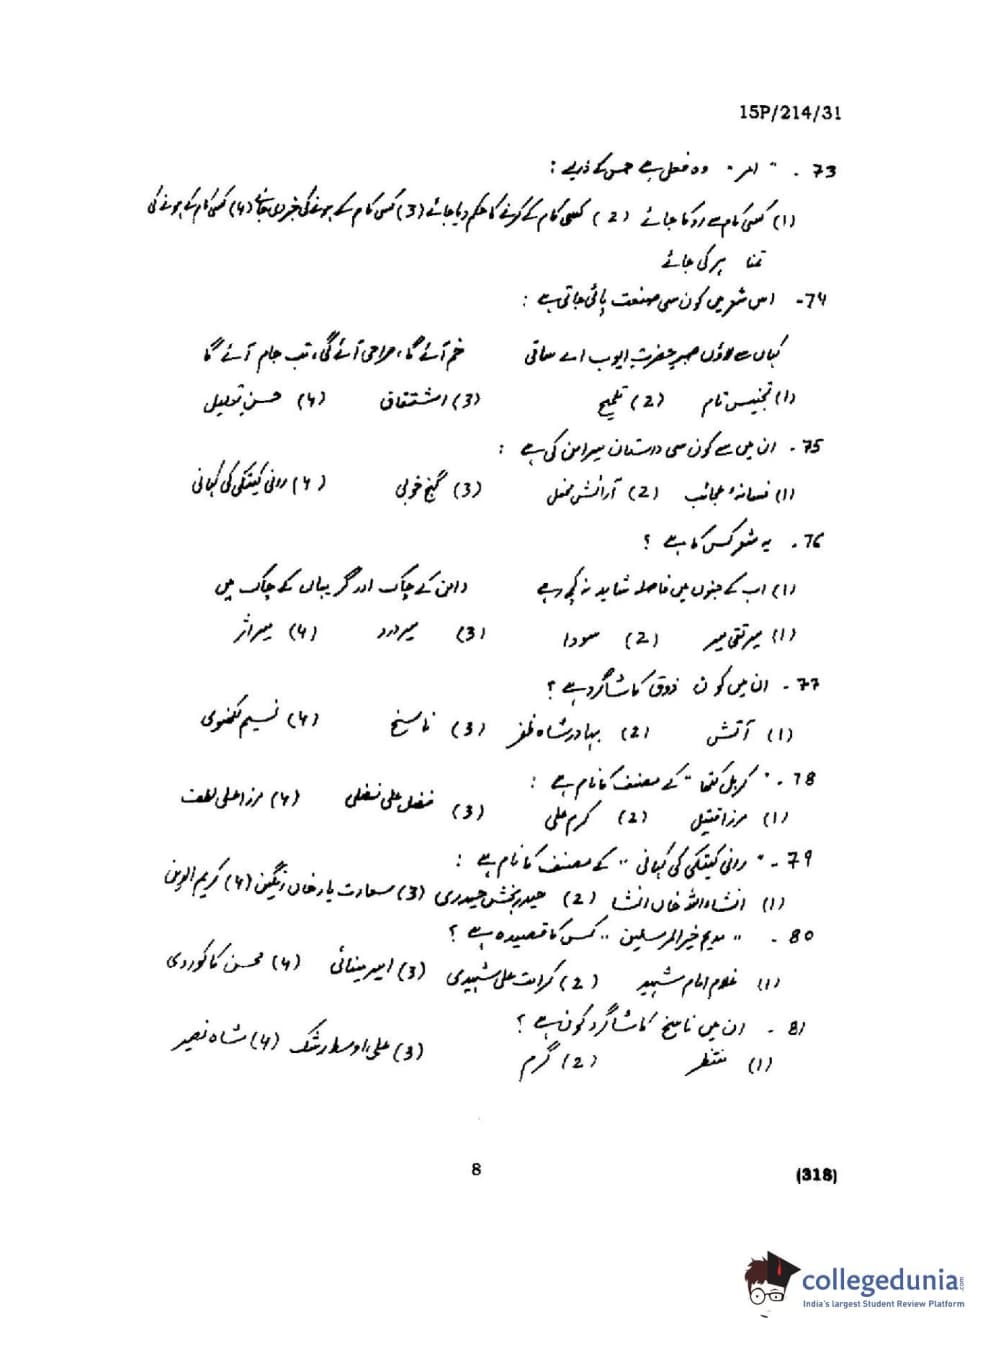 15P/214/31
73 - "امر" وہ فعل ہے جس کے ذریعے :
(1) کسی کام سے روکا جائے (2) کسی کام کے کرنے کا حکم دیا جائے (3) کسی کام کے ہونے کی خبر دی جائے (4) کسی کام کے ہونے کی
تمنا ہر کی جائے
74- اس شعر میں کون سی صنعت پائی جاتی ہے :
کہاں سے لاؤں صبر حضرت ایوب اے ساقی خم آئے گا، صراحی آئے گی، تب جام آئے گا
(1) تجنیس تام (2) تلمیح (3) اشتقاق (4) حسن تعلیل
75 - ان میں سے کون سی داستان میرامن کی ہے :
(1) فسانۂ عجائب (2) آرائش محفل (3) گنج خوبی (4) رانی کیتکی کی کہانی
76 - یہ شعر کس کا ہے ؟
(1) اب کے جنوں میں فاصلہ شاید نہ کچھ رہے دامن کے چاک اور گریباں کے چاک میں
(1) میر تقی میر (2) سودا (3) میر درد (4) میر اثر
77 - ان میں کون ذوق کا شاگرد ہے ؟
(1) آتش (2) بہادر شاہ ظفر (3) ناسخ (4) نسیم لکھنوی
78 - "کربل کتھا" کے مصنف کا نام ہے :
(1) مرزا قتیل (2) کرم علی (3) فضل علی فضلی (4) مرزا علی لطف
79 - "رانی کیتکی کی کہانی" کے مصنف کا نام ہے :
(1) انشاء اللہ خاں انشا (2) حیدر بخش حیدری (3) سعادت یار خاں رنگین (4) کریم الدین
80 - "مدیح خیر المرسلین" کس کا قصیدہ ہے ؟
(1) غلام امام شہید (2) کرامت علی شہیدی (3) امیر مینائی (4) محسن کاکوروی
81 - ان میں ناسخ کا شاگرد کون ہے ؟
(1) منتظر (2) گرم (3) علی اوسط رشک (4) شاہ نصیر
8
(318)
collegedunia.com
India's largest Student Review Platform